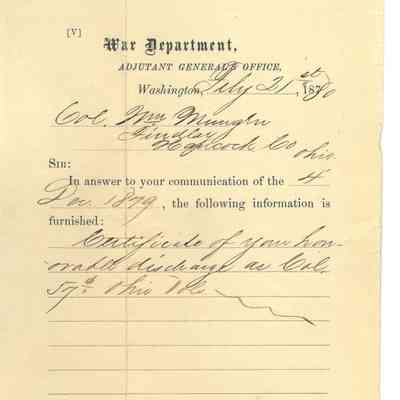 [V]
War Department,
ADJUTANT GENERAL'S OFFICE,
Washington, July 21st, 1880
Col. Wm Mungen
Findlay
Hancock Co
Ohio
SIR:
In answer to your communication of the 4
Dec. 1879, the following information is
furnished:
Certificate of your hon-
orable discharge as Col.
57th Ohio Vols.